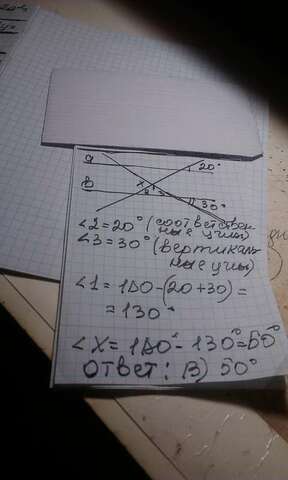 a
20°
b
x
30°
∠2=20° (соответствен
ные углы)
∠3=30° (вертикаль
ные углы)
∠1=180-(20+30)=
=130°
∠X=180°-130°=50°
ответ: В) 50°